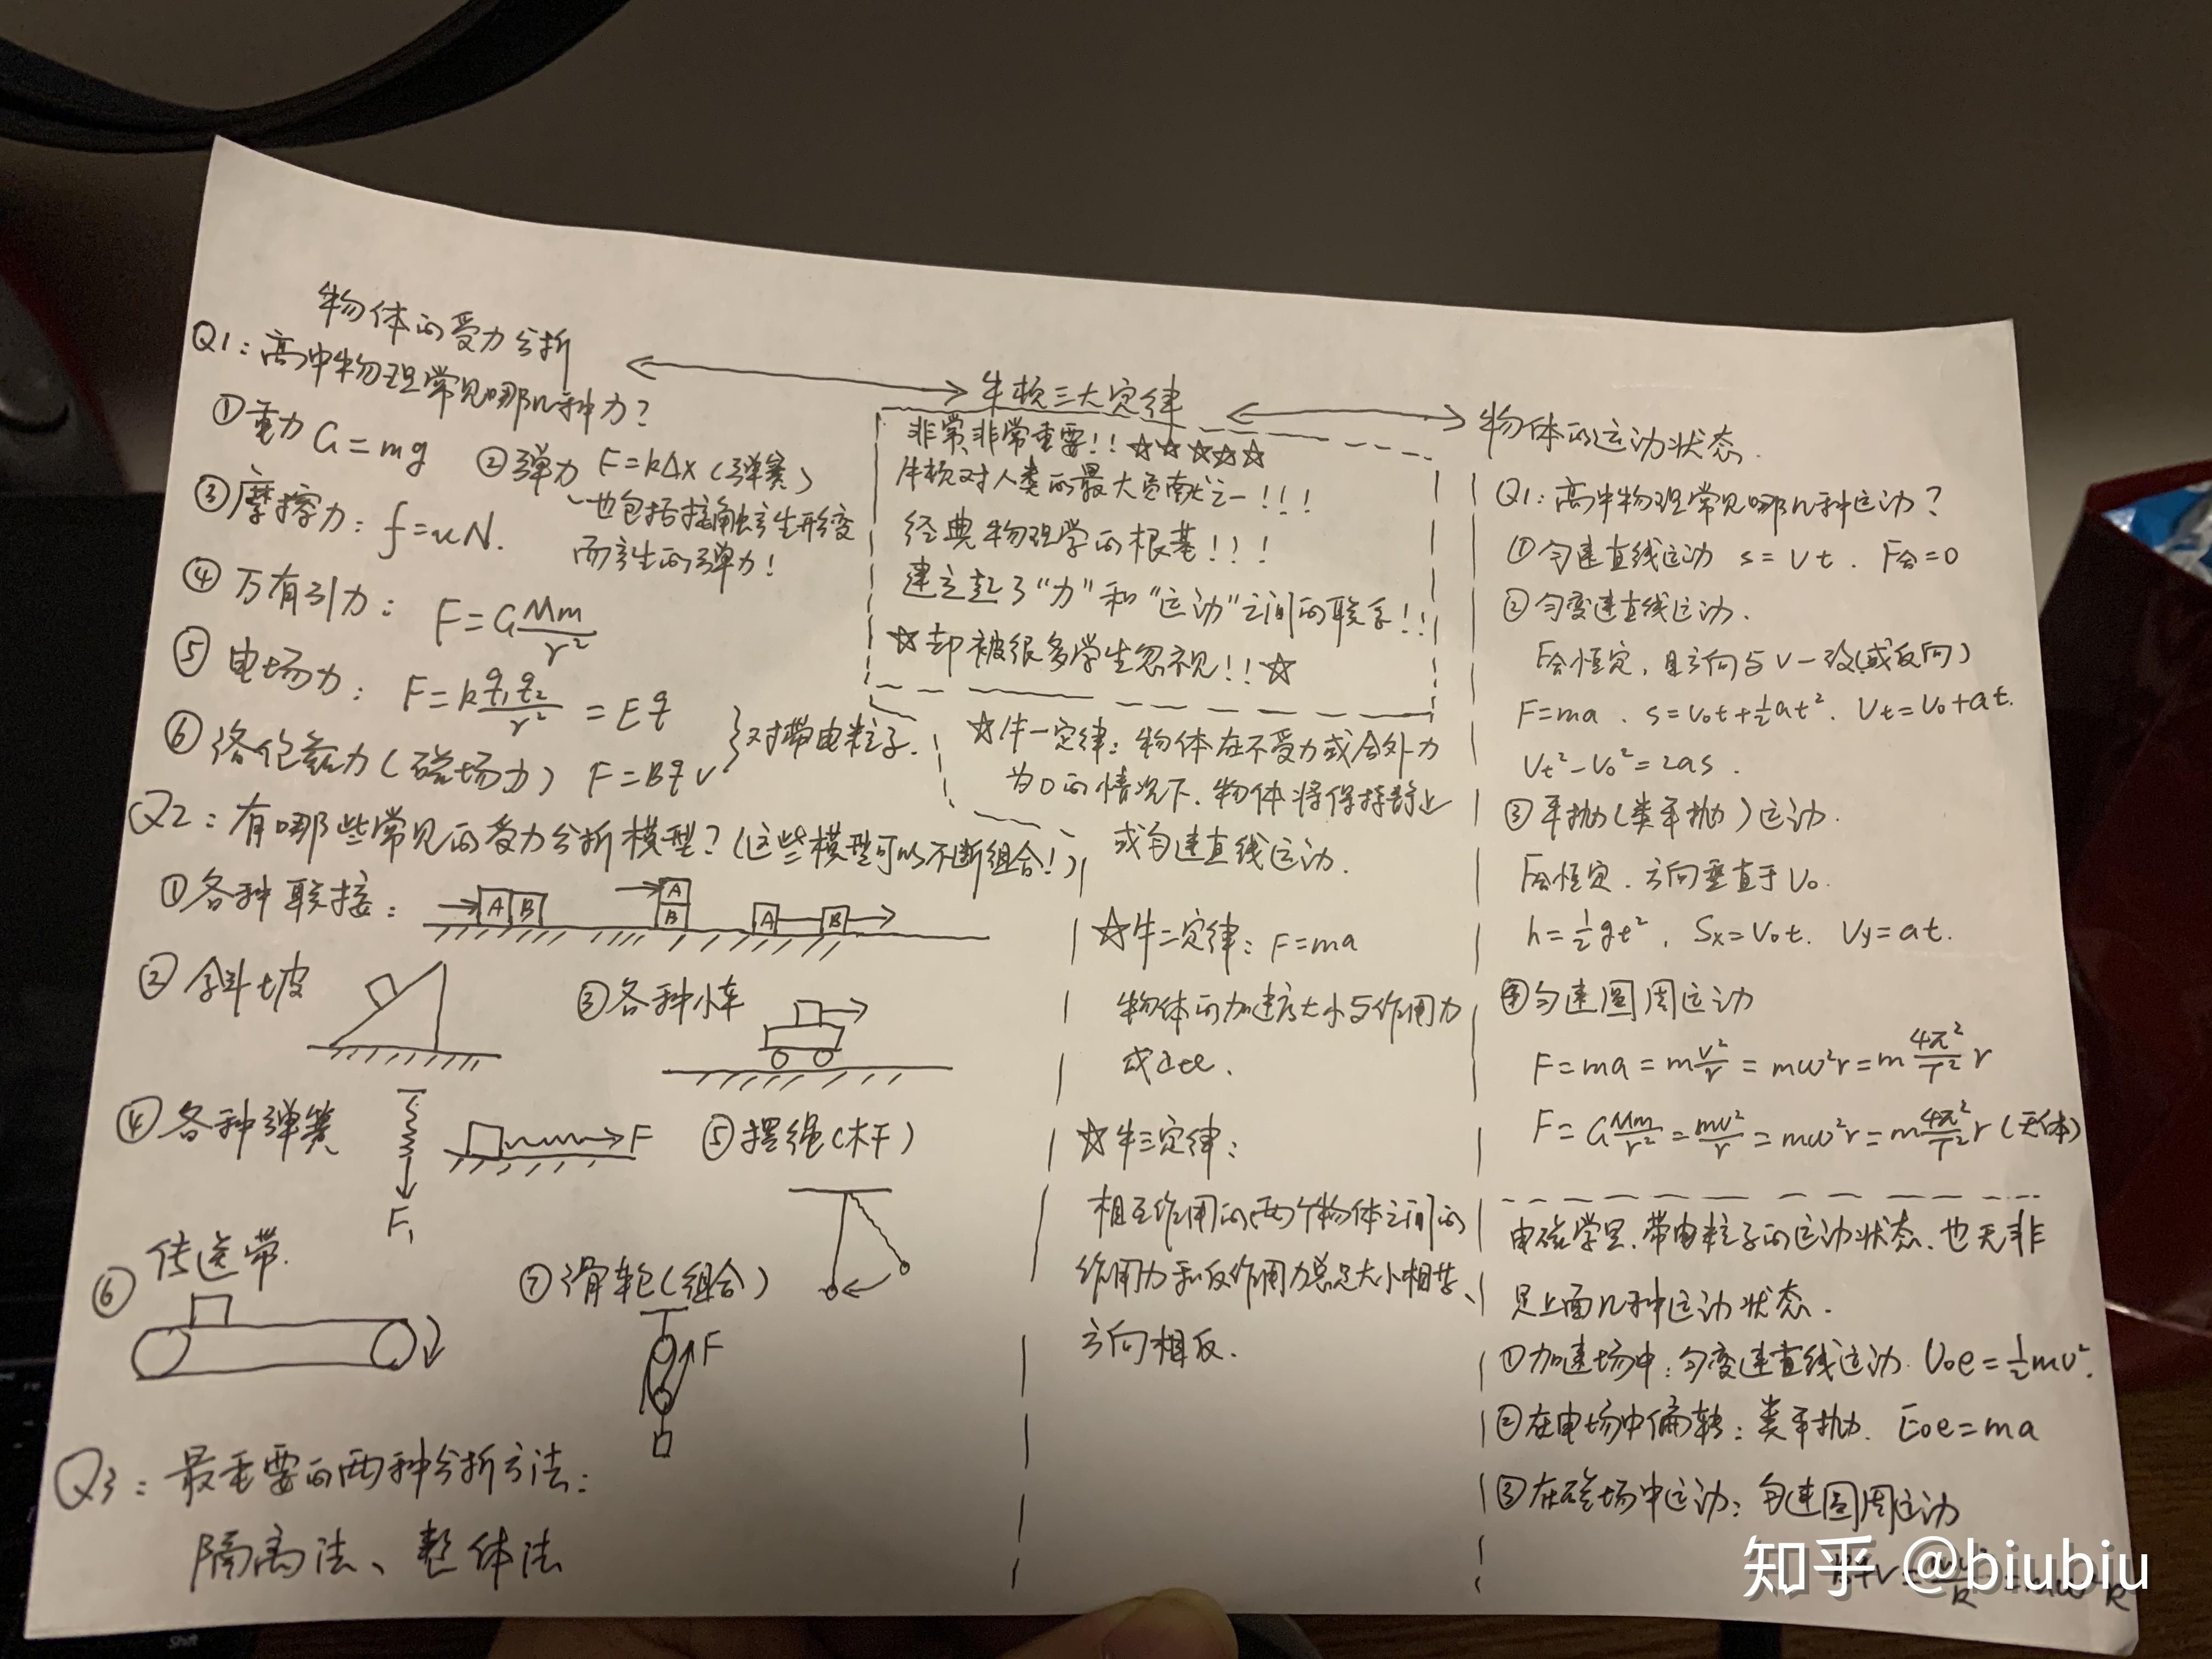 物体的受力分析
Q1：高中物理常见哪几种力？
①重力 G=mg ②弹力 F=kΔx（弹簧）
也包括接触产生形变
而产生的弹力！
③摩擦力：f=uN.
④万有引力：F=G\frac{Mm}{r²}
⑤电场力：F=k\frac{q₁q₂}{r²}=Eq
⑥洛伦兹力（磁场力） F=Bqv
}对带电粒子.
Q2：有哪些常见的受力分析模型？（这些模型可以不断组合！）
①各种联接：
A B
A
B
A B
②斜坡 ③各种小车
④各种弹簧 F ⑤摆绳（杆）
F₁
⑥传送带. ⑦滑轮（组合）
F
Q3：最重要的两种分析方法：
隔离法、整体法
牛顿三大定律
非常、非常重要！！☆☆☆☆☆
牛顿对人类的最大贡献之一！！！
经典物理学的根基！！！
建立起了“力”和“运动”之间的联系！！
☆却被很多学生忽视！！☆
☆牛一定律：物体在不受力或合外力
为0的情况下.物体将保持静止
或匀速直线运动.
☆牛二定律：F=ma
物体的加速度大小与作用力
成正比.
☆牛三定律：
相互作用的两个物体之间的
作用力和反作用力总是大小相等、
方向相反.
物体的运动状态.
Q1：高中物理常见哪几种运动？
①匀速直线运动 s=vt. F合=0
②匀变速直线运动.
F合恒定，且方向与v一致(或反向)
F=ma. s=v₀t+½at². Vt=V₀+at.
Vt²-V₀²=2as.
③平抛(类平抛)运动.
F合恒定.方向垂直于V₀.
h=½gt², Sx=V₀t. Vy=at.
④匀速圆周运动
F=ma=m\frac{v²}{r}=mω²r=m\frac{4π²}{T²}r
F=G\frac{Mm}{r²}=\frac{mv²}{r}=mω²r=m\frac{4π²}{T²}r(天体)
电磁学里、带电粒子的运动状态、也无非
是上面几种运动状态.
①加速场中：匀变速直线运动. U₀e=½mv².
②在电场中偏转：类平抛. E₀e=ma
③在磁场中运动：匀速圆周运动
知乎 @biubiu